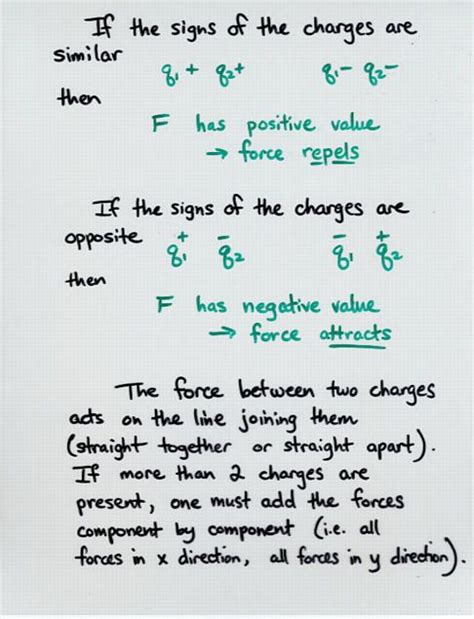 If the signs of the charges are
similar
q₁+ q₂+ q₁- q₂-
then
F has positive value
→ force repels
If the signs of the charges are
opposite
+ - - +
q₁ q₂ q₁ q₂
then
F has negative value
→ force attracts
The force between two charges
acts on the line joining them
(straight together or straight apart).
If more than 2 charges are
present, one must add the forces
component by component (i.e. all
forces in x direction, all forces in y direction).